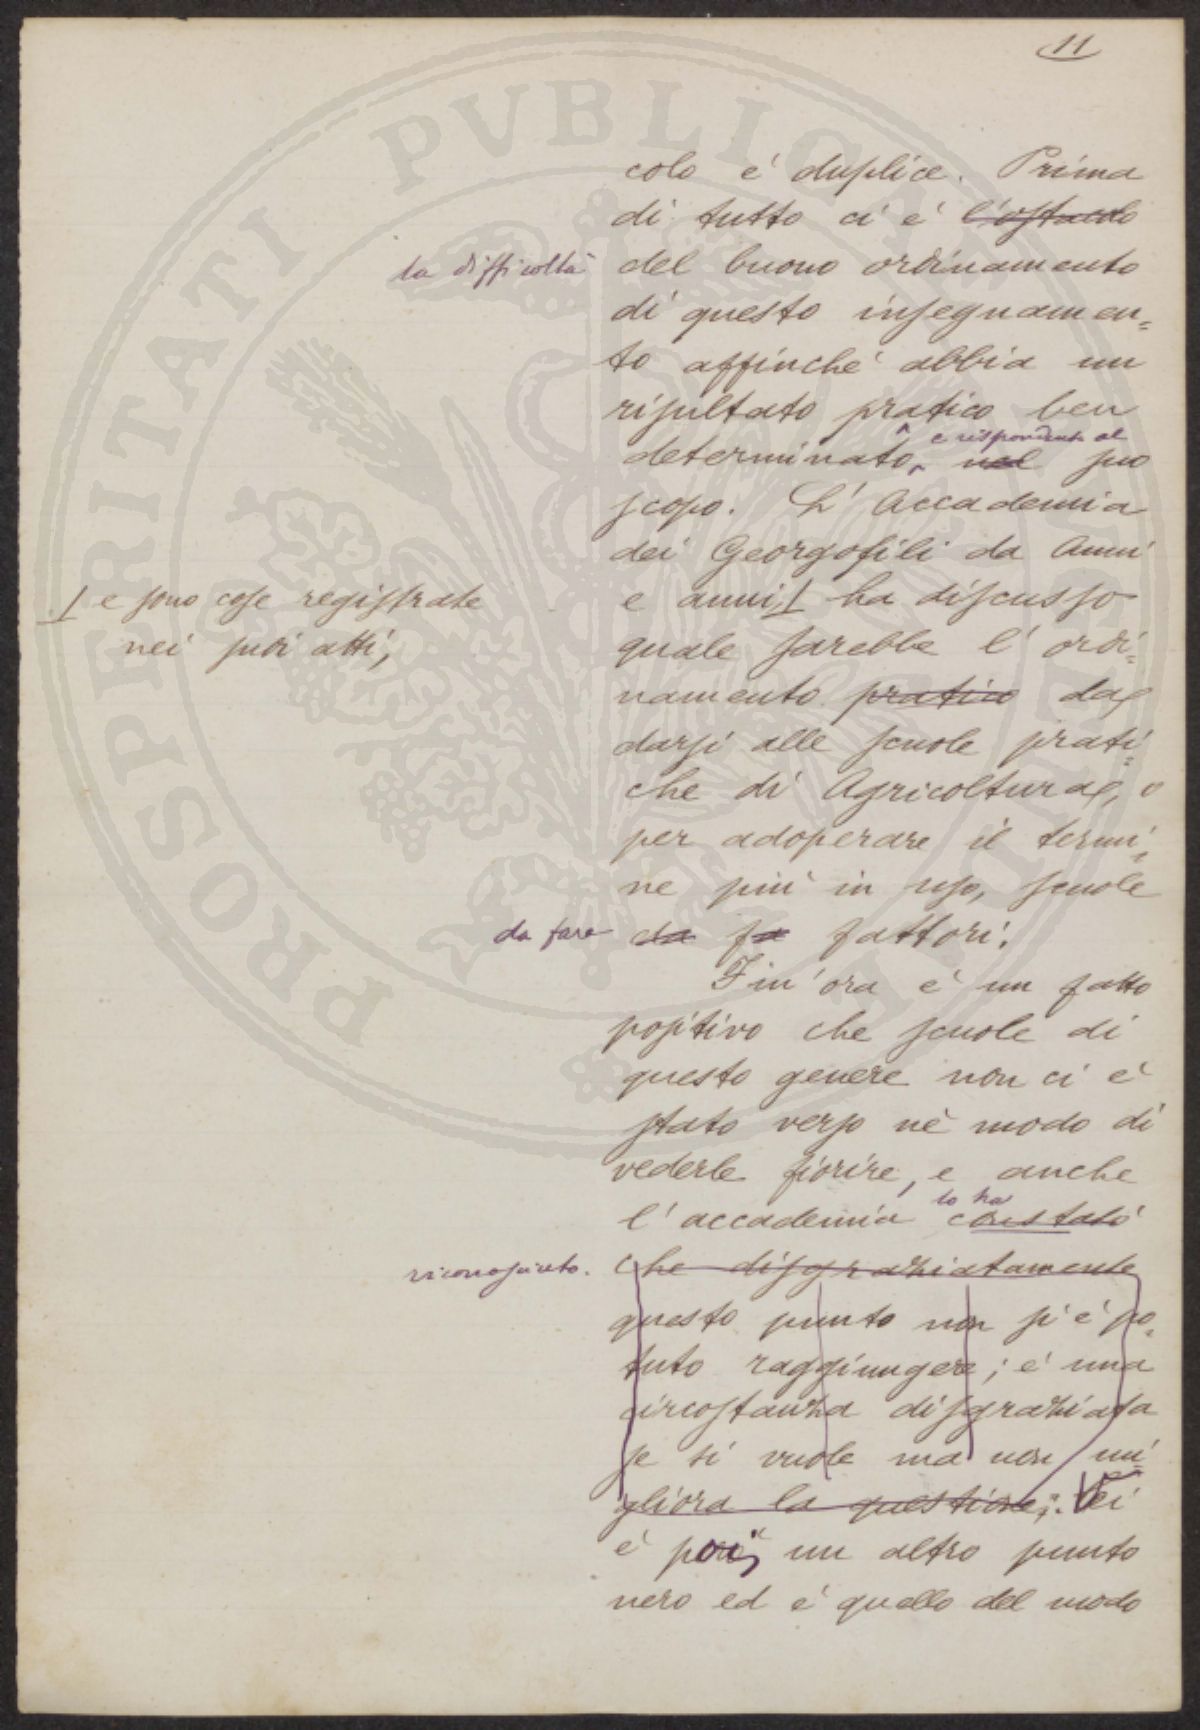 11
colo é duplice. Prima
di tutto ci é l'ostacolo
la difficoltà
del buono ordinamento
di questo insegnamen=
to affinché abbia un
risultato pratico ben
e rispondente al
determinato, nel suo
scopo. L' Accademia
dei Georgofili da Anni
e anni, ha discusso
e sono cose registrate
nei suoi atti,
quale sarebbe l' ordi=
namento pratico da
darsi alle scuole prati=
che di Agricoltura, o
per adoperare il termi=
ne piú in uso, scuole
da fare
da fa fattori.
Fin' ora é un fatto
positivo che scuole di
questo genere non ci é
stato verso né modo di
vederle fiorire, e anche
lo ha
l' accademia constató
riconosciuto.
che disgraziatamente
questo punto non si é po=
tuto raggiungere; é una
circostanza disgraziata
se si vuole ma non mi=
gliora la questione; Vei
é poi, un altro punto
nero ed é quello del modo
PROSPERITATI PUBLICAE